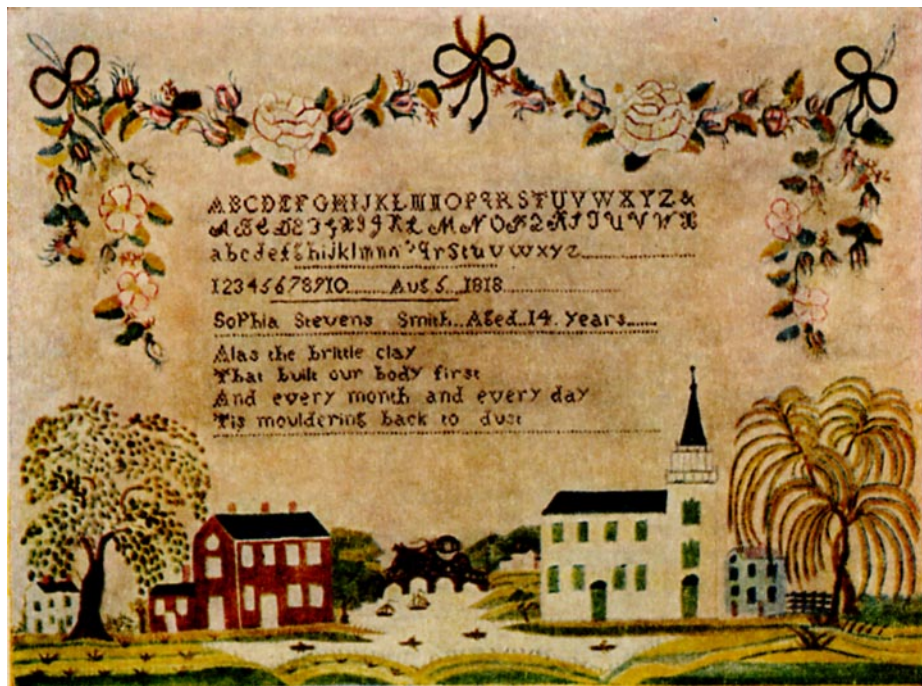 ABCDEFGHIJKLMNOPQRSTUVWXYZ&
ABCDEFGHIJKLMNOPQRSTUVWX
abcdefghijklmnopqrstuvwxyz
12345678910 Aug 5 1818
Sophia Stevens Smith Aged 14 years
Alas the brittle clay
That built our body first
And every month and every day
'Tis mouldering back to dust